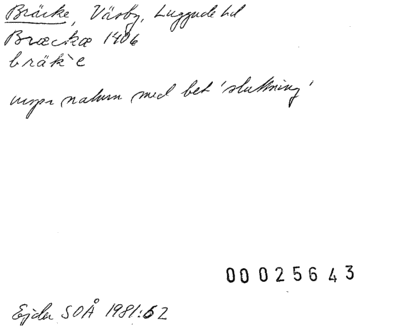 Bräcke, Väsby, Luggude hd
Bræckæ 1406
bräk`e
urspr natumn med bet 'sluttning'
00025643
Ejder SOÅ 1981:62